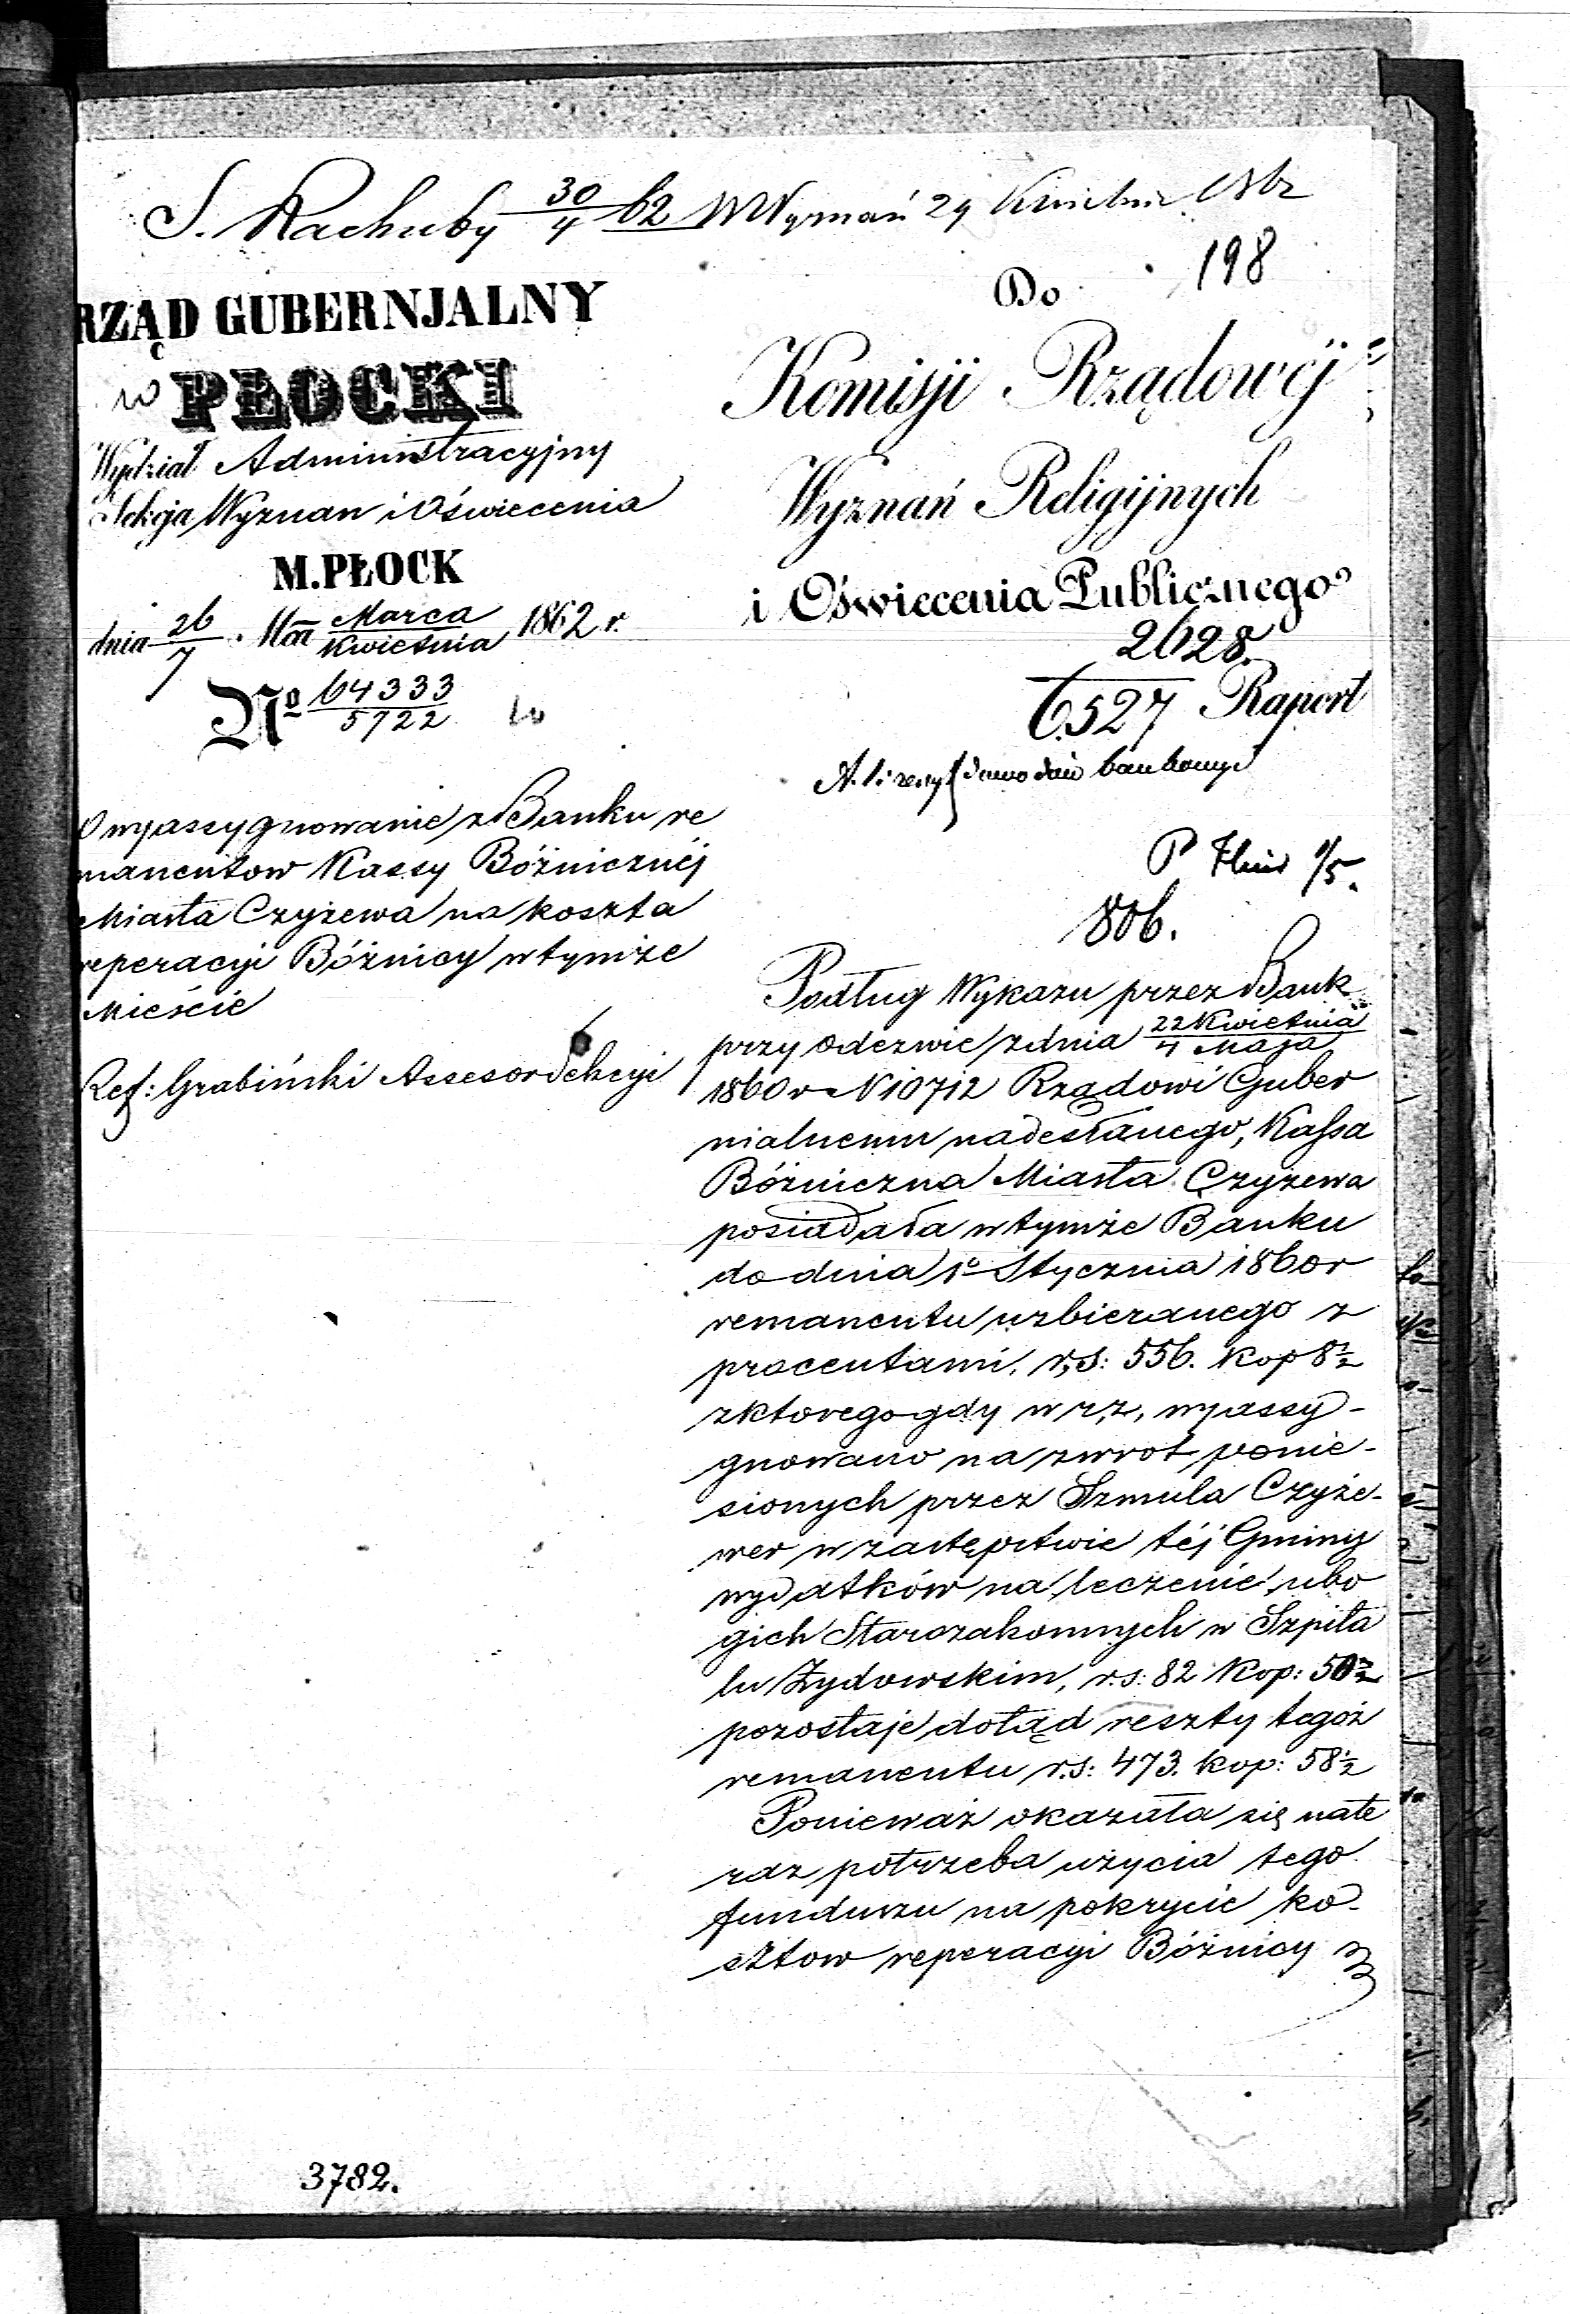 S. Rachuby 30/4 62 WWyznań 29 Kwietnia
198
RZĄD GUBERNJALNY
w PŁOCKI
Wydział Administracyjny
Sekcja Wyznan i Oświecenia
M. PŁOCK
dnia 26/7 Marca/Kwietnia 1862 r.
No 64333/5722
O wyassygnowanie z Banku re
manentow Kassy Bóżnicznéj
Miasta Czyżewa na koszta
reperacyi Bóżnicy w tymże
Mieście
Ref: Grabiński Assesor Sekcyi
Do
Komisji Rządowéj
Wyznań Religijnych
i Oświecenia Publicznego
2628.
6527 Raport
806.
Podług Wykazu przez Bank
przy odezwie z dnia 22 Kwietnia/4 Maja
1860 r N 10712 Rządowi Guber
nialnemu nadesłanego, Kassa
Bóżniczna Miasta Czyżewa
posiadała w tymże Banku
do dnia 1o Stycznia 1860 r
remanentu uzbieranego z
procentami, r,s: 556. kop 8½
z ktorego gdy w r,z, wyassy-
gnowano na zwrot ponie-
sionych przez Szmula Czyże-
wer w zastępstwie téj Gminy
wydatków na leczenie ubo
gich Starozakonnych w Szpita
lu Żydowskim, r.s: 82 Kop: 50
pozostaje dotąd reszty tegoż
remanentu r.s: 473. kop: 58½
Ponieważ okazała się nate
raz potrzeba użycia tego
funduszu na pokrycie ko-
sztow reperacyi Bóżnicy
3782.